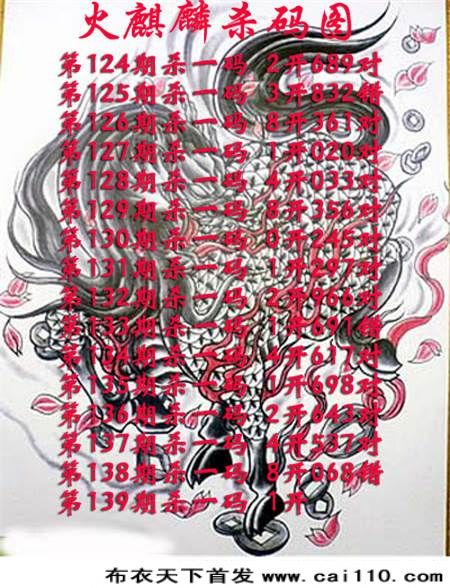 火麒麟杀码图
第124期杀一码 2开689对
第125期杀一码 3开832错
第126期杀一码 8开361对
第127期杀一码 1开020对
第128期杀一码 4开033对
第129期杀一码 8开356对
第130期杀一码 0开245对
第131期杀一码 1开297对
第132期杀一码 2开966对
第133期杀一码 1开691错
第134期杀一码 4开617对
第135期杀一码 1开698对
第136期杀一码 2开643对
第137期杀一码 4开537对
第138期杀一码 8开068错
第139期杀一码 1开
布衣天下首发 www.cai110.com